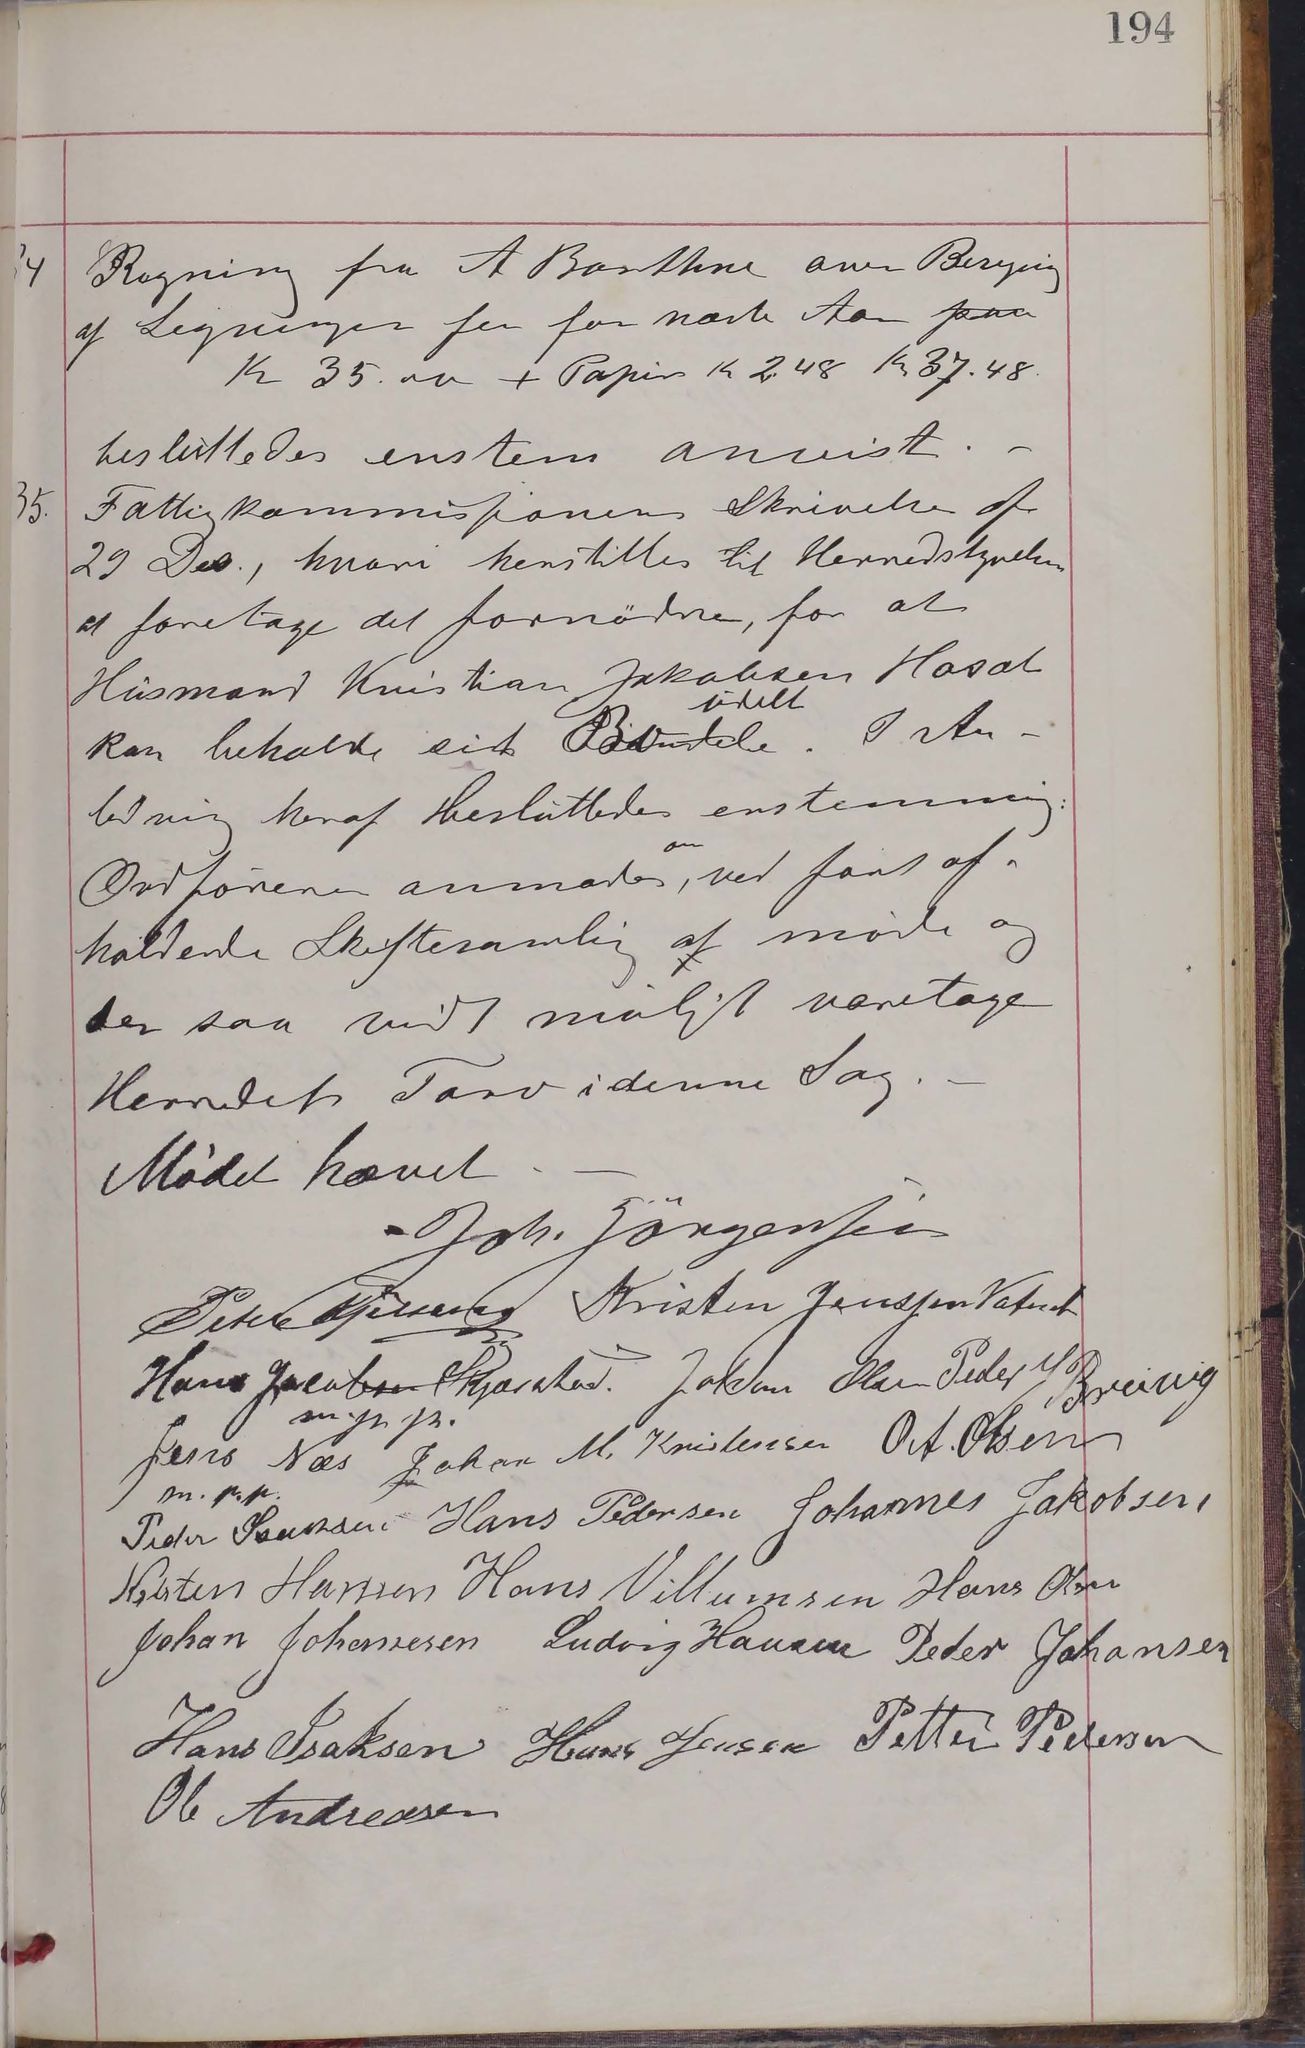 194
34 Regning fra A Barthne over Beregning
af Ligningen for næste Aar paa
Kr 35.00 + Papir K 2.48 Kr 37.48.
besluttedes enstem anvist. -
35. Fattigkommissjonens Skrivelse af
29 Des., hvori henstilles til Herredstyrelsen
at foretage det fornødne, for at
Husmand Kristian Jakobsen Hasat
udelt
kan behalde sit Bo. I An-
ledning heraf besluttedes enstemmig:
om
Ordføreren anmodes, ved først af-
holdende Skiftesamling at møde og
der saa vidt muligt varetage
Herredets Tarv i denne Sag. -
Mødet hævet. -
Joh. Jörgensen
Peter Kristen Jenssen Vatnet
Hans Jacobsen Skjærstad. Johan Olsen Peder M Breivig
m. p. p.
Jens Næs Johan M. Kristensen O. A. Olsen
m. p. p.
Peder Hans Pedersen Johannes Jakobsen
Kristen Hansen Hans Villumsen Hans Olsen
Johan Johannesen Ludvig Hansen Peder Johansen
Hans Isaksen Hans Jensen Petter Pedersen
Ole Andreasen